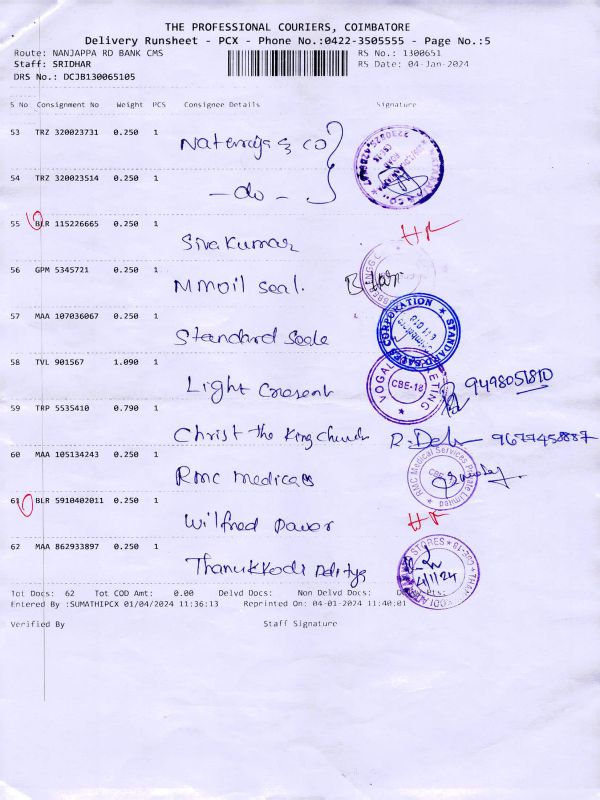 THE PROFESSIONAL COURIERS, COIMBATORE
Delivery Runsheet - PCX - Phone No.:0422-3505555 - Page No.:5
Route: NANJAPPA RD BANK CMS RS No.: 1300651
Staff: SRIDHAR RS Date: 04-Jan-2024
DRS No.: DCJB130065105
S No Consignment No Weight PCS Consignee Details Signature
53 TRZ 320023731 0.250 1 Nataraja & CO
54 TRZ 320023514 0.250 1 - do -
55 BLR 115226665 0.250 1 Sivakumar
56 GPM 5345721 0.250 1 Mmoil Seal.
57 MAA 107036067 0.250 1 Standard Seale
STANDARD SALES CORPORATION
58 TVL 901567 1.090 1 Light Cresent 9498051810
CBE-18
59 TRP 5535410 0.790 1 Christ the King church 9677458887
60 MAA 105134243 0.250 1 Rmc medicals
RMC Medical Services Private Limited
61 BLR 5910402011 0.250 1 Wilfred Davor
62 MAA 862933897 0.250 1 Thanukkodi Aditya
STORES CBE-18
4/1/24
Tot Docs: 62 Tot COD Amt: 0.00 Delvd Docs: Non Delvd Docs:
Entered By :SUMATHIPCX 01/04/2024 11:36:13 Reprinted On: 04-01-2024 11:40:01
Verified By Staff Signature